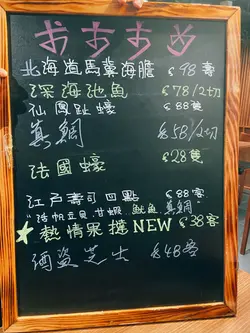 北海道馬糞海膽 $98壽
深海池魚 $78/2切
仙鳳趾蠔 $88隻
真鯛 $58/2切
法國蠔 $28隻
江戶壽司四點 $88客
"活帆立貝 甘蝦 魷魚 真鯛
熱情果撻NEW $38客
酒盜芝士 $48客